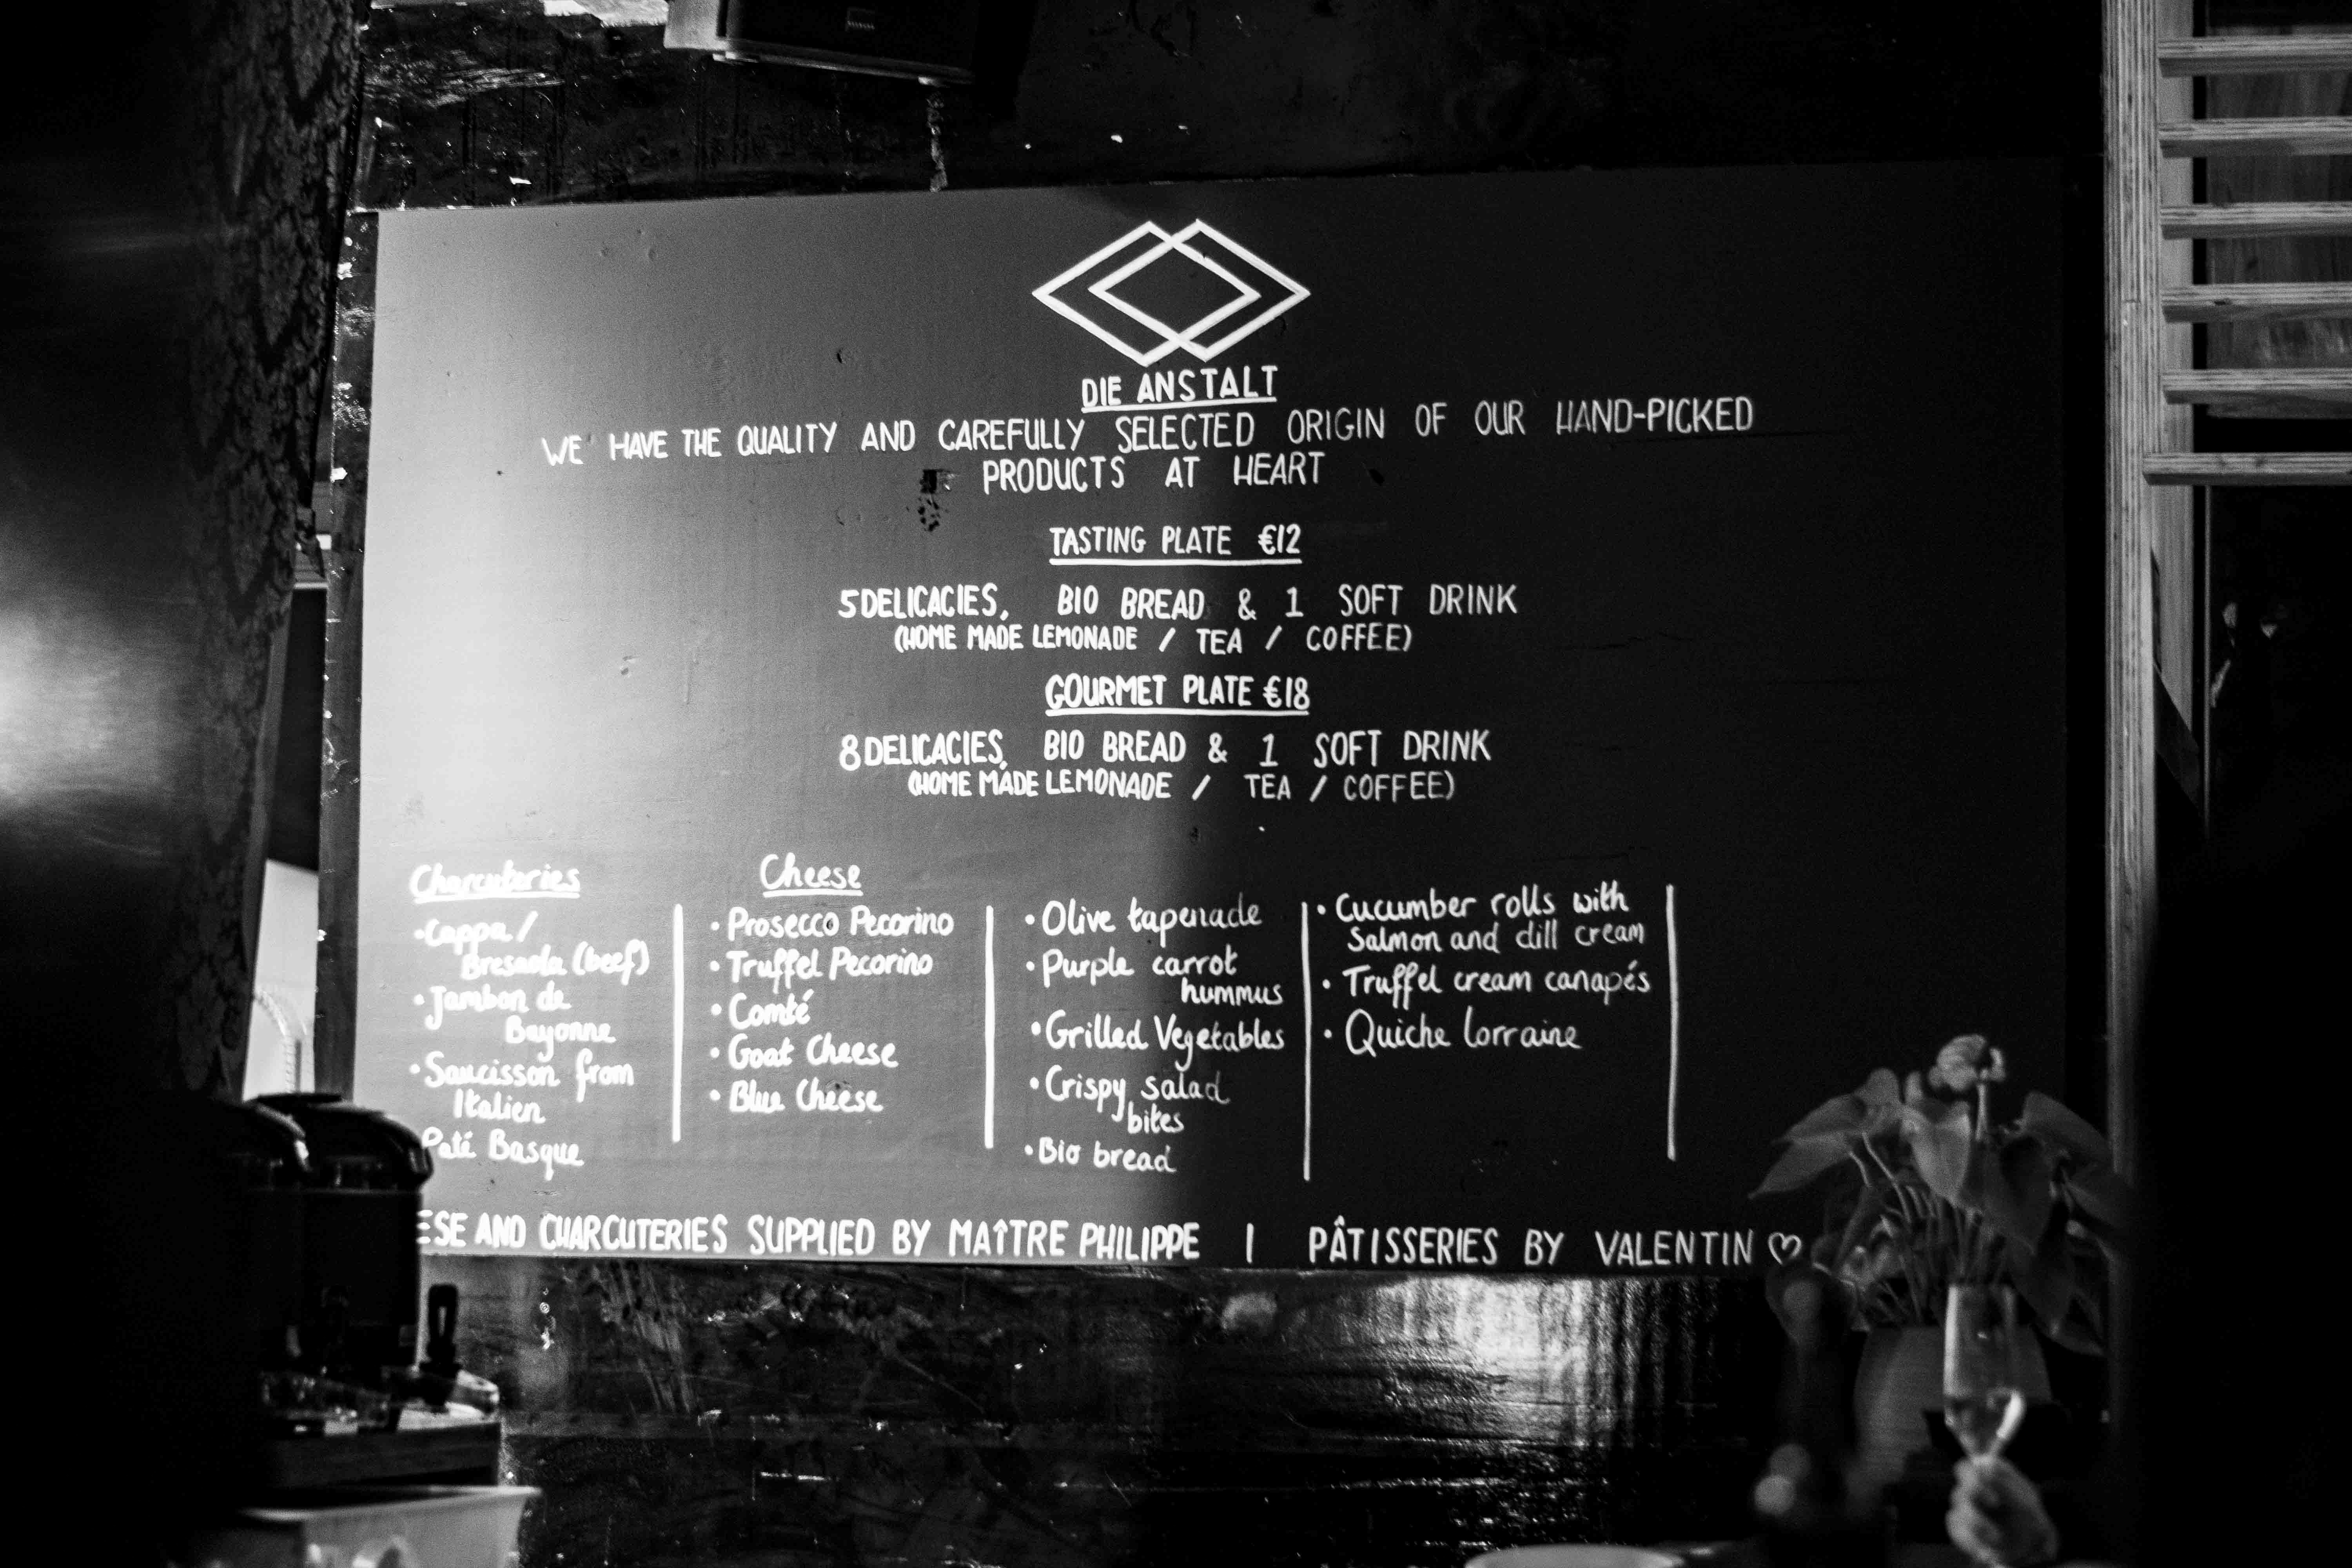 DIE ANSTALT
WE HAVE THE QUALITY AND CAREFULLY SELECTED ORIGIN OF OUR HAND-PICKED
PRODUCTS AT HEART
TASTING PLATE €12
5 DELICACIES, BIO BREAD & 1 SOFT DRINK
(HOME MADE LEMONADE / TEA / COFFEE)
GOURMET PLATE €18
8 DELICACIES, BIO BREAD & 1 SOFT DRINK
(HOME MADE LEMONADE / TEA / COFFEE)
Charcuteries
• Cappa /
Bresaola (beef)
• Jambon de
Bayonne
• Saucisson from
Italien
Paté Basque
Cheese
• Prosecco Pecorino
• Truffel Pecorino
• Comté
• Goat Cheese
• Blue Cheese
• Olive tapenade
• Purple carrot
hummus
• Grilled Vegetables
• Crispy salad
bites
• Bio bread
• Cucumber rolls with
Salmon and dill cream
• Truffel cream canapés
• Quiche lorraine
ESE AND CHARCUTERIES SUPPLIED BY MAÎTRE PHILIPPE | PÂTISSERIES BY VALENTIN ♡